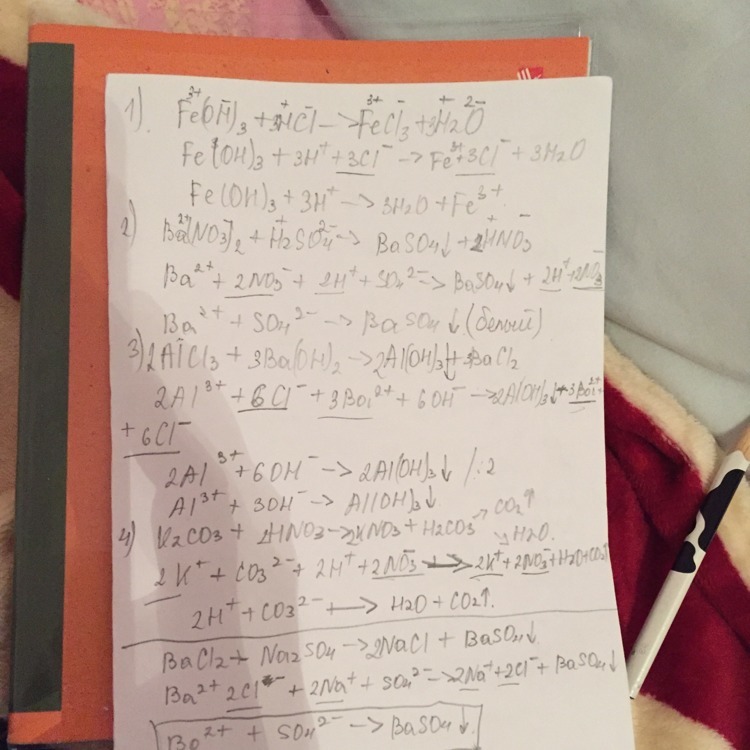 1). Fe³⁺(OH)⁻₃ + 3H⁺Cl⁻ —> Fe³⁺Cl⁻₃ + 3H⁺₂O²⁻
Fe(OH)₃ + 3H⁺ + 3Cl⁻ —> Fe³⁺ + 3Cl⁻ + 3H₂O
Fe(OH)₃ + 3H⁺ —> 3H₂O + Fe³⁺
2) Ba²⁺(NO₃)⁻₂ + H⁺₂SO₄²⁻ —> BaSO₄↓ + 2H⁺NO₃⁻
Ba²⁺ + 2NO₃⁻ + 2H⁺ + SO₄²⁻ —> BaSO₄↓ + 2H⁺ + 2NO₃⁻
Ba²⁺ + SO₄²⁻ —> BaSO₄↓ (белый)
3) 2AlCl₃ + 3Ba(OH)₂ —> 2Al(OH)₃↓ + 3BaCl₂
2Al³⁺ + 6Cl⁻ + 3Ba²⁺ + 6OH⁻ —> 2Al(OH)₃↓ + 3Ba²⁺ +
+ 6Cl⁻
2Al³⁺ + 6OH⁻ —> 2Al(OH)₃↓ /:2
Al³⁺ + 3OH⁻ —> Al(OH)₃↓
4) K₂CO₃ + 2HNO₃ —> 2KNO₃ + H₂CO₃ ↗ CO₂↑
↘ H₂O.
2K⁺ + CO₃²⁻ + 2H⁺ + 2NO₃⁻ —> 2K⁺ + 2NO₃⁻ + H₂O + CO₂↑
2H⁺ + CO₃²⁻ —> H₂O + CO₂↑.
BaCl₂ + Na₂SO₄ —> 2NaCl + BaSO₄↓
Ba²⁺ 2Cl⁻ + 2Na⁺ + SO₄²⁻ —> 2Na⁺ + 2Cl⁻ + BaSO₄↓
Ba²⁺ + SO₄²⁻ —> BaSO₄↓.